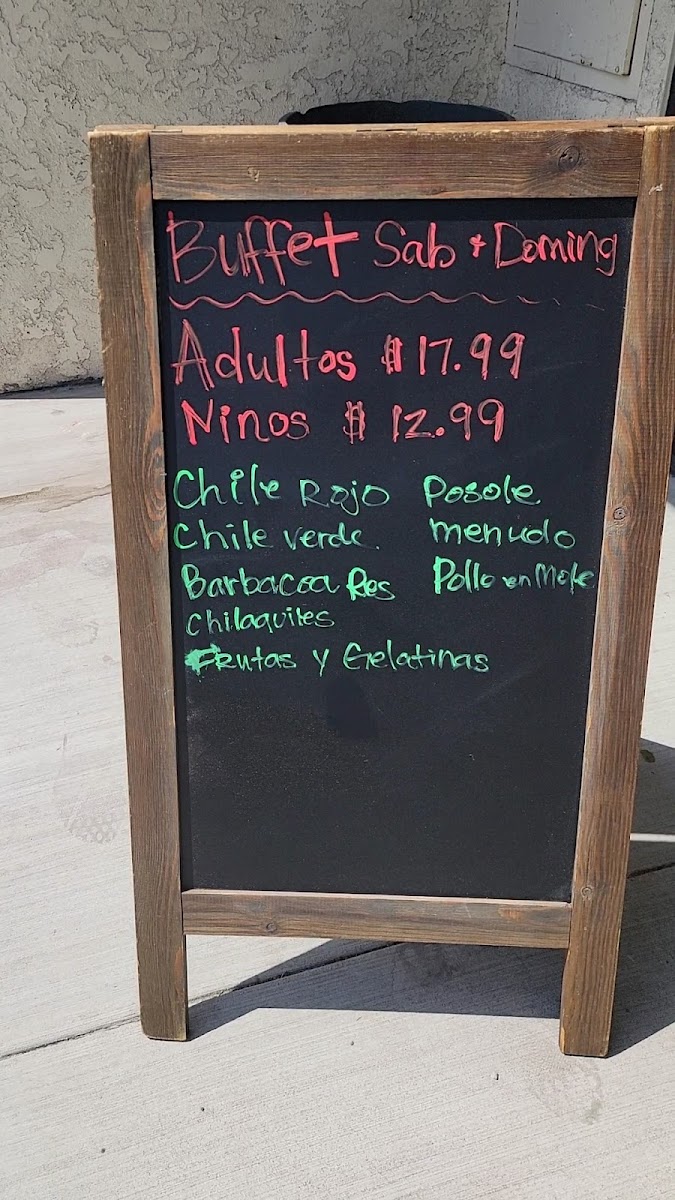 Buffet Sab + Doming
Adultos $17.99
Ninos $12.99
Chile Rojo Posole
Chile verde. menudo
Barbacoa Res Pollo en Mole
Chilaquiles
Frutas y Gelatinas